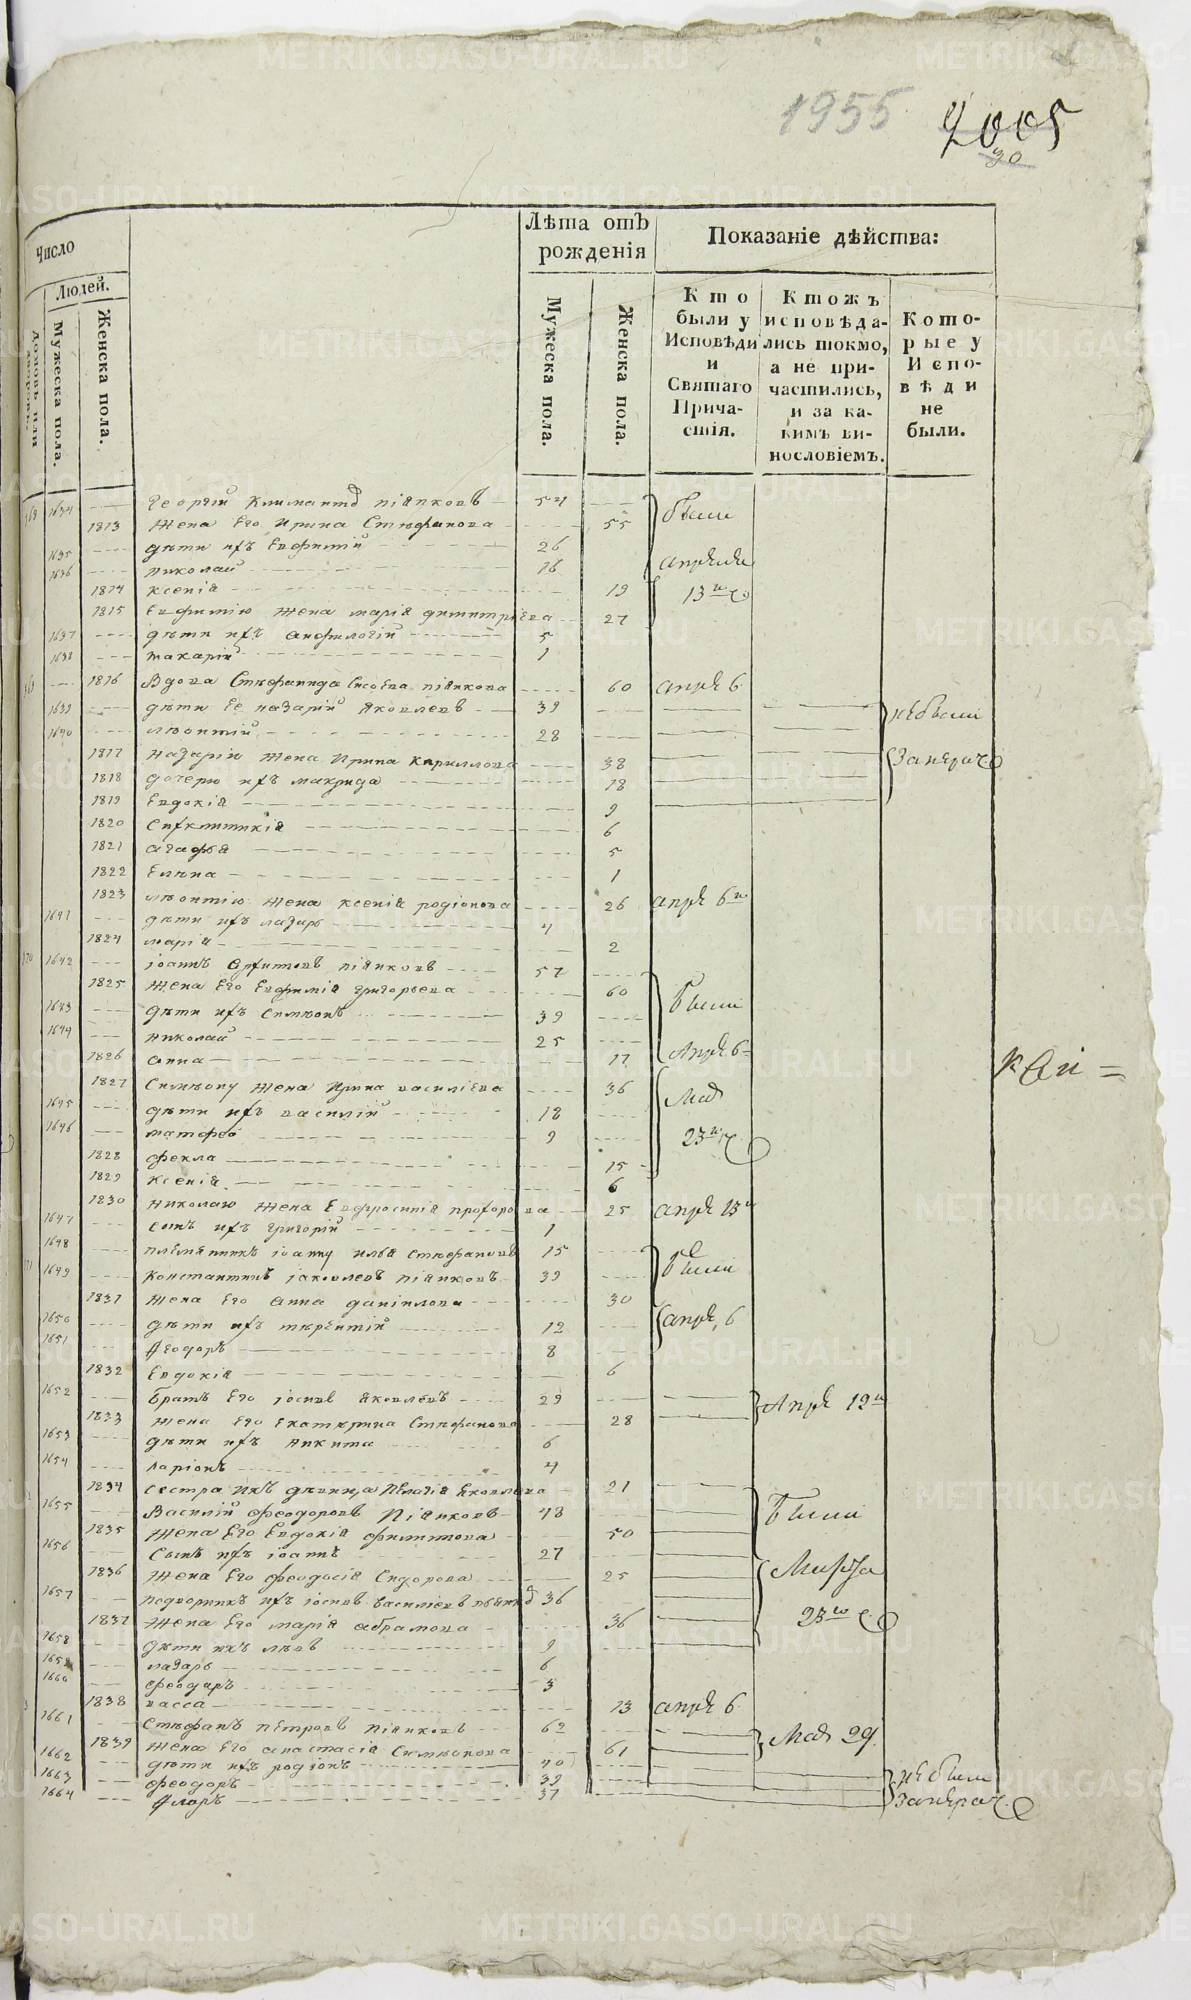 1955
2005
30
Число
Людей.
Домовъ или дворовъ.
Мужеска пола.
Женска пола.
Лѣта отъ рожденія
Мужеска пола.
Женска пола.
Показаніе дѣйства:
Кто были у Исповѣди и Святаго Причастія.
Ктожъ исповѣдались токмо, а не причастились, и за какимъ винословіемъ.
Которые у Исповѣди не были.
1634 Георгій Климантов піянковъ 54 были
1813 Жена Его Ирина Стефанова 55
1635 дѣти ихъ Евфимій 26
1636 Николай 16 апреля
1814 Ксенія 19 13го
1815 Евфимію Жена марія димитріева 27
1637 дѣти ихъ Анфилогій 5
1638 макарій 1
1816 Вдова Стефанида Сысоева піянкова 60 апре 6
1639 дѣти Ее назарій Яковлевъ 39 небыли
1640 леонтій 28
1817 Назарію Жена Ирина Кириллова 38
1818 дочерю ихъ макрида 18
1819 Евдокія 9
1820 Сигклитикія 6
1821 агафья 5
1822 Елена 1
1823 леонтію Жена ксенія родіонова 26 апре 6го
1641 дѣти ихъ лазарь 4
1824 марія 2
170 1642 іоаннъ піянковъ 57
1825 Жена Его Евфимія григорьева 60 были
1643 дѣти ихъ Симеонъ 39
1644 Николай 25
1826 анна 17 Апре 6
1827 Симеону Жена Ирина василіева 36 Мая
1645 дѣти ихъ василій 18
1646 матфей 9 23го
1828 фекла 15
1829 Ксенія 6
1830 Николаю Жена Евфросинія прохорова 25 апре 13
1647 сынъ ихъ григорій 1
1648 племянникъ іоанну илья Стефановъ 15 были
1649 Константинъ іаковлевъ піянковъ 39
1831 Жена Его Анна даніилова 30
1650 дѣти ихъ терентій 12 апре, 6
1651 Феодоръ 8
1832 Евдокія 6
1652 братъ Его іосифъ Яковлевъ 29 Апре 12
1833 Жена Его Екатерина Стефанова 28
1653 дѣти ихъ Никита 6
1654 ларіонъ 4
1834 Сестра ихъ девица Пелагія Яковлева 21
1655 Василій Феодоровъ Піянковъ 48 были
1835 Жена Его Евдокія филиппова 50
1656 Сынъ ихъ іоаннъ 27
1836 Жена Его феодосія Сидорова 25 Марта
1657 подворникъ ихъ іосифъ василіевъ 36
1837 Жена Его марія абрамова 36 23го
1658 дѣти ихъ левъ 9
1659 лазарь 6
1660 феодоръ 3
1838 васса 13 апре 6
1661 Стефанъ петровъ піянковъ 62
1839 Жена Его анастасія Симеонова 61 Мая 29.
1662 дѣти ихъ родіонъ 40
1663 феодоръ 39 небыли
1664 Флоръ 37